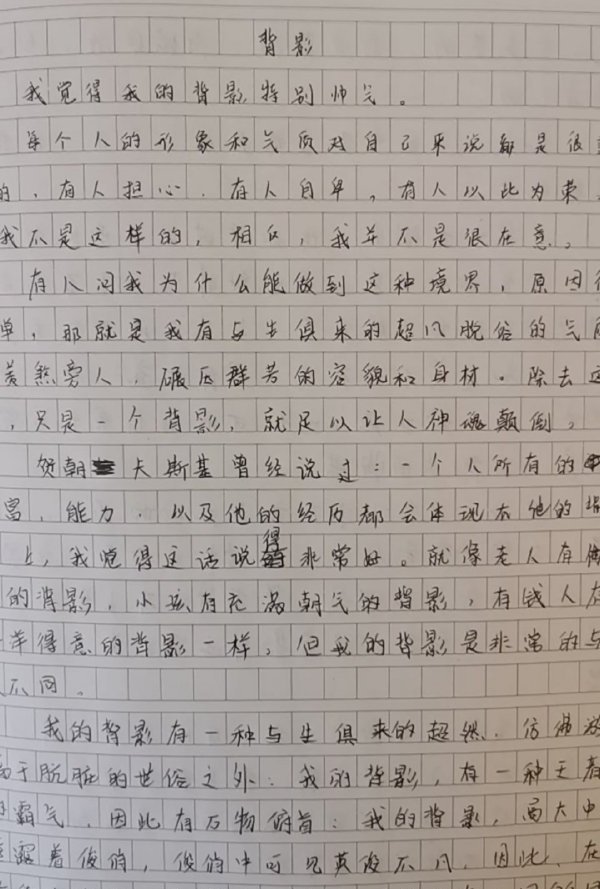 背影
我觉得我的背影特别帅气。
每个人的形象和气质对自己来说都是很
的，有人担心，有人自卑，有人以此为荣，
我不是这样的，相反，我并不是很在意。
有人问我为什么能做到这种境界，原因很
单，那就是我有与生俱来的超凡脱俗的气质
羡煞旁人，碾压群芳的容貌和身材。除去这
，只是一个背影，就足以让人神魂颠倒。
贺朝夫斯基曾经说过：一个人所有的
富，能力，以及他的经历都会体现在他的背
上，我觉得这话说得非常好。就像老人有
的背影，小孩有充满朝气的背影，有钱人有
羊得意的背影一样，但我的背影是非常的与
不同。
我的背影有一种与生俱来的超然，仿佛游
离于肮脏的世俗之外；我的背影，有一种王者
霸气，因此有万物俯首；我的背影，高大中
透露着俊俏，俊俏中可见英俊不凡，因此，在